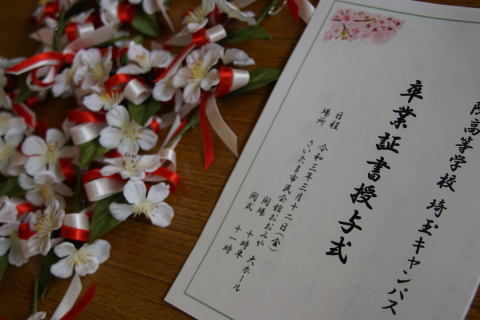 院高等学校 埼玉キャンパス
卒業証書授与式
日程 令和三年三月十二日(金)
場所 さいたま市民会館おおみや 大ホール
開場 十時半
開式 十一時